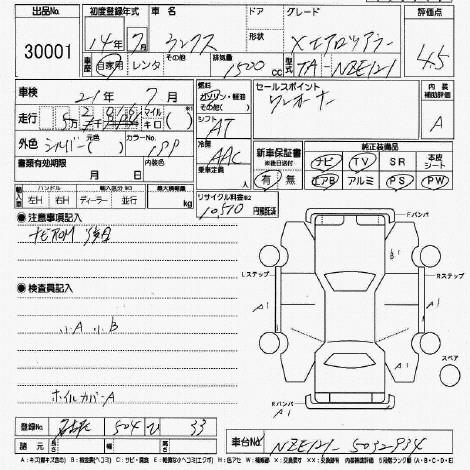 出品No. 30001
初度登録年式 14年 7月
車名 ランクス
ドア 形状
グレード Xエアロツアラー
評価点 4.5
車歴 自家用 レンタ その他
排気量 1500 cc
型式 TA-NZE121
車検 21年 7月
燃料 ガソリン・軽油
セールスポイント ワンオーナー
内装補助評価 A
走行 5万 マイル キロ ( )
シフト AT
外色 シルバー 元色 ( )
カラーNo.
冷房 AAC
書類有効期限 月 日
内装色
乗車定員 人
新車保証書 ※後日送付 有 無
純正装備品
ナビ TV SR 本皮シート
エアB アルミ PS PW
輸入車 ハンドル 左H 右H
輸入区分※3 ディーラー 並行
最大積載量 kg
リサイクル料金※2 10,510 円預託済
●注意事項記入
ナビROM 後日
●検査員記入
小A 小B
ホイルカバーA
Fバンパ
Lステップ Rステップ
A1 A1
B1
A1
スペア
Rバンパ A1
登録No. 504 ひ 33
諸元 長 幅 高
車台No. NZE121-5032934